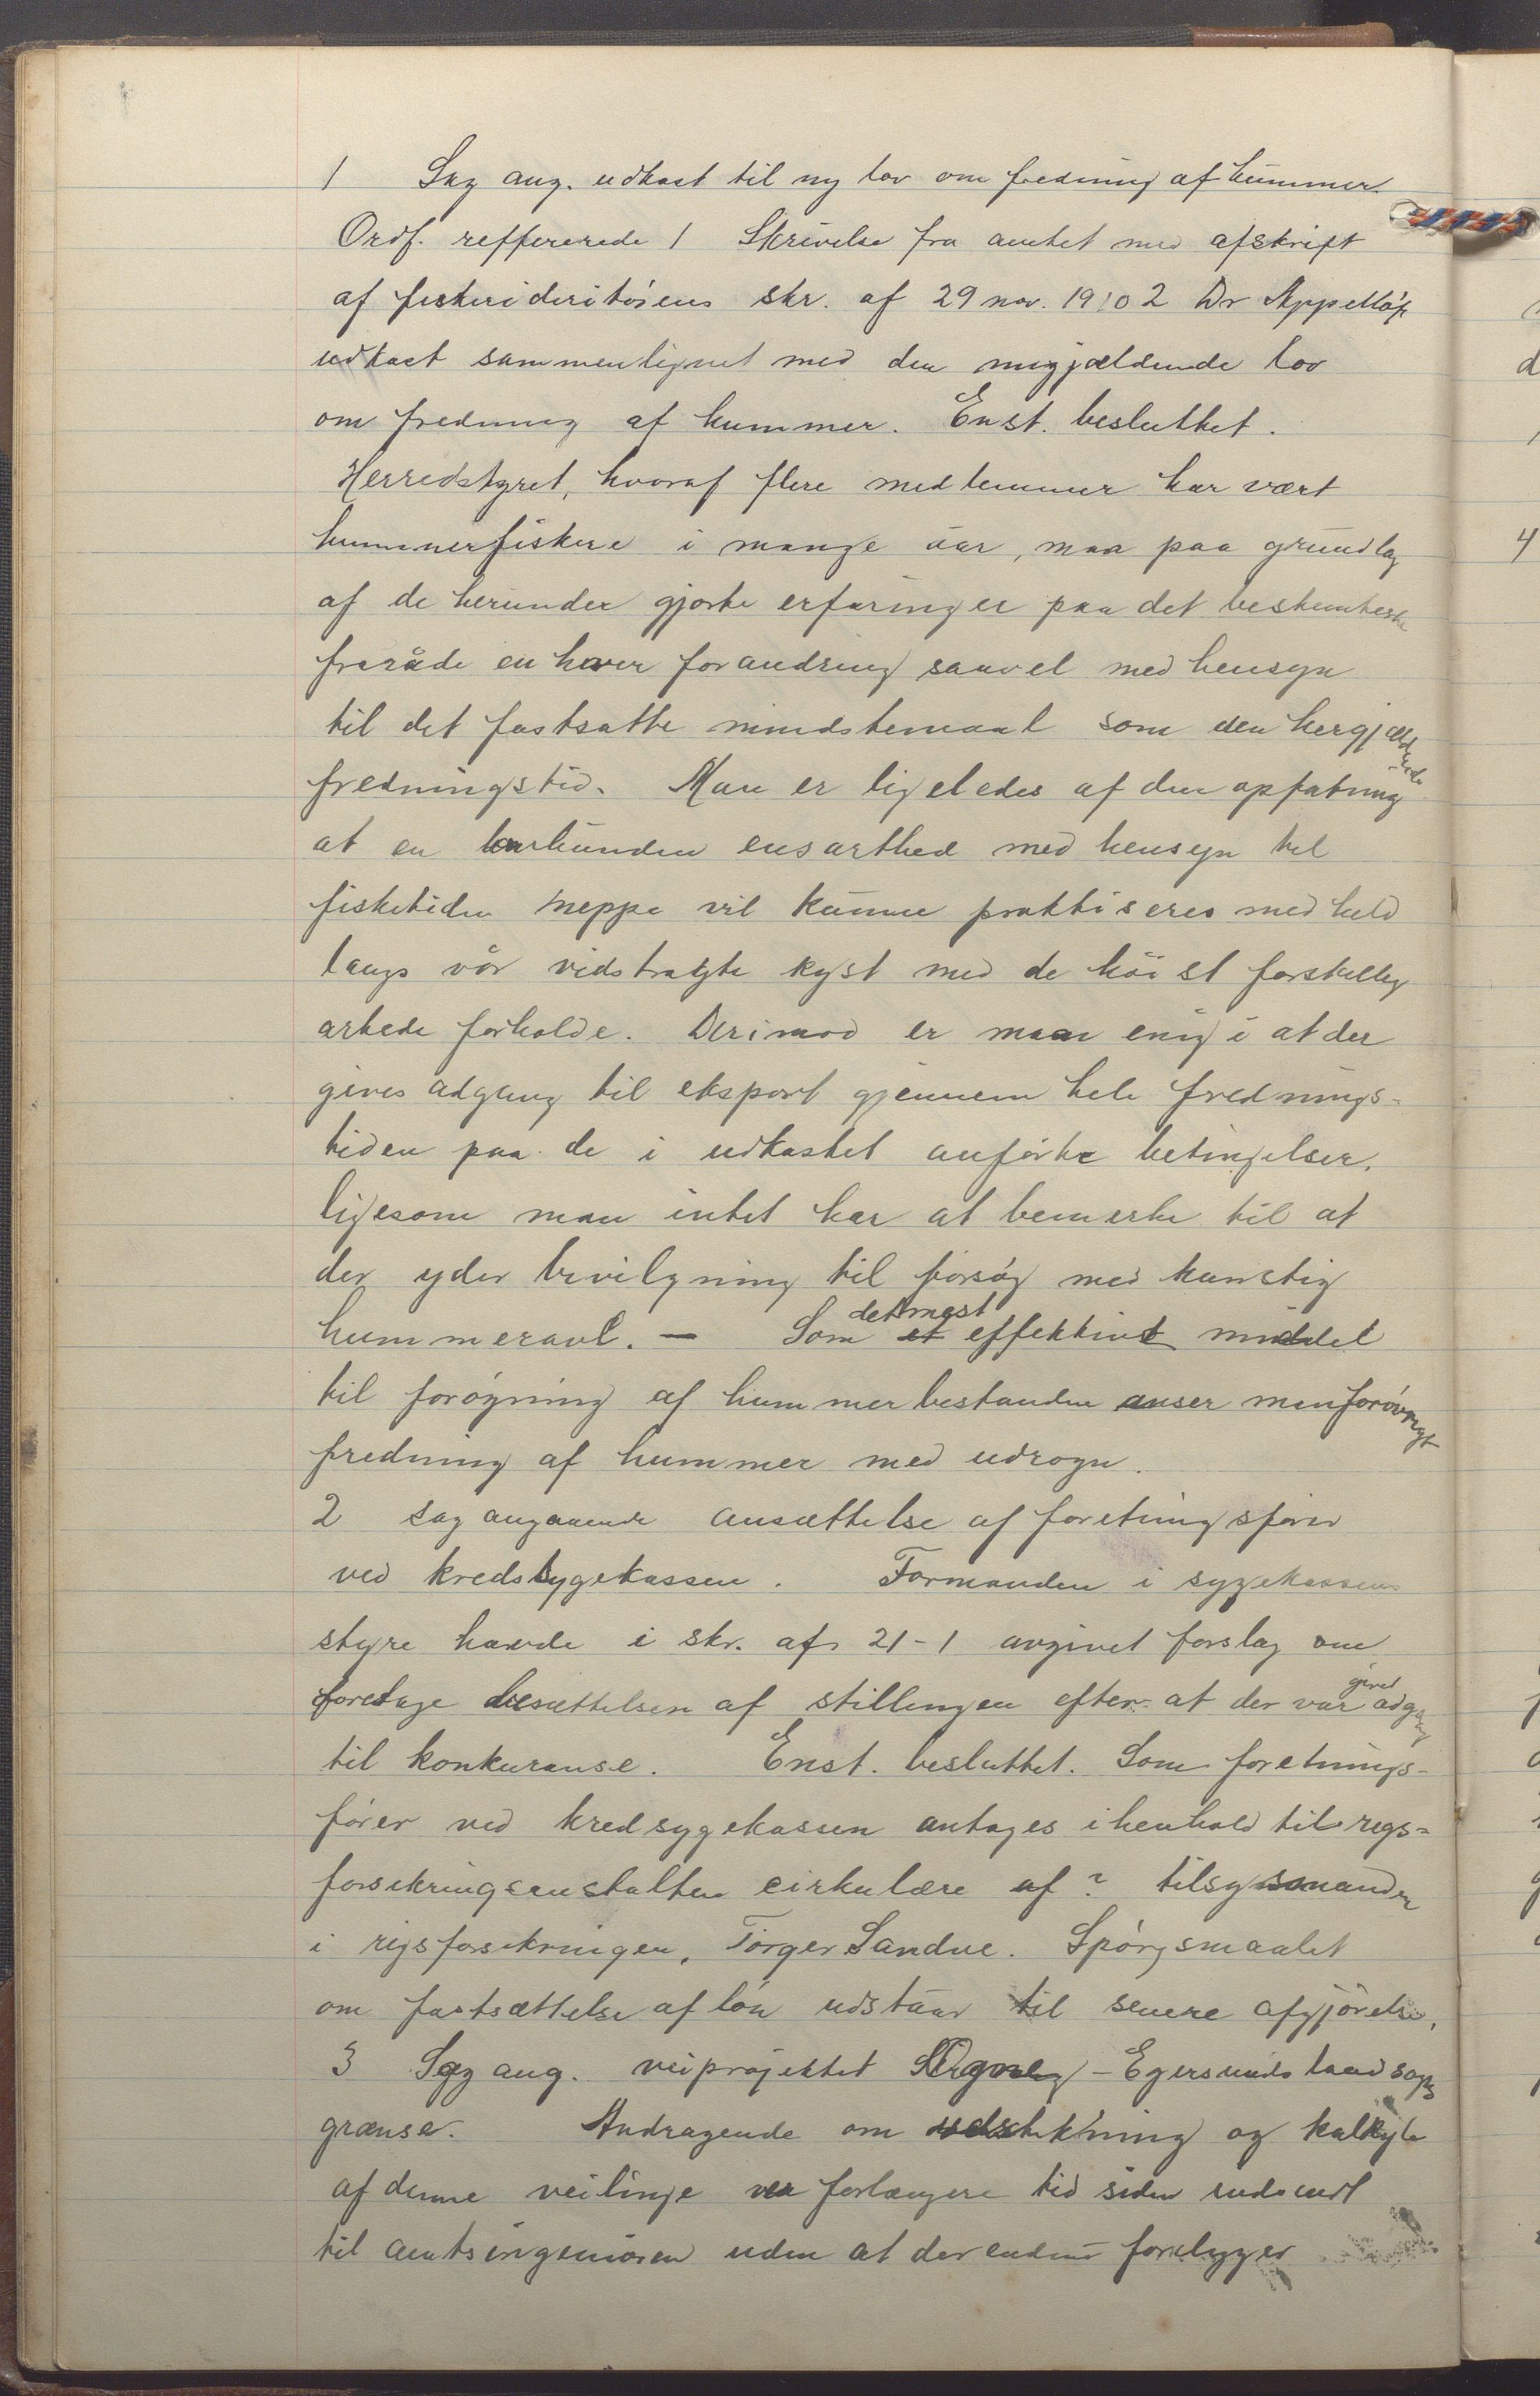 1 Sag ang. udkast til ny lov om fredning af hummer.
Ordf. reffererede 1 Skrivelse fra amtet med afskrift
af fiskerideritörens skr. af 29 nov. 1902 Dr Appelløf
udkast sammenlignet med den nugjældende lov
om fredning af hummer. Enst. besluttet.
Herredstyret, hvoraf flere medlemmer har vært
hummerfiskere i mange aar, maa paa grundlag
af de herunder gjorte erfaringer paa det bestemteste
fraråde en hver forandring saavel med hensyn
til det fastsatte mindstemaal som den hergjældende
fredningstid. Man er ligeledes af den opfatning
at en ensarthed med hensyn til
fisketiden neppe vil kunne praktiseres med held
langs vår vidstragte kyst med de höist forskellig
artede forholde. Derimod er man enig i at der
gives adgang til eksport gjennem hele frednings-
tiden paa de i udkastet anförte betingelser,
ligesom man intet har at bemerke til at
der yder bevilgning til forsög med kunstig
hummeravl. — Som det mest effektive middel
til forögning af hummerbestanden anser man forövrigt
fredning af hummer med udrogn.
2 Sag angaaende ansættelse af foretningsförer
ved kredssygekassen. Formanden i sygekassens
styre havde i skr. af 21-1 avgivet forslag om
foretage besættelsen af stillingen efter at der var givet adgang
til konkuranse. Enst. besluttet. Som foretnings-
förer ved kredsygekassen antages i henhold til rigs-
forsikringsanstalten cirkulære af ? tilsynsmanden
i rigsforsikringen, Törger Sandve. Spörgsmaalet
om fastsættelse af lön udstaar til senere afgjörelse.
3 Sag ang. veiprojektet Ogne - Egersunds landsogns
grænse. Andragende om udstikning og kalkyle
af denne veilinje var forlængere tid siden indsendt
til amtsingeniören uden at der endnu forelygger